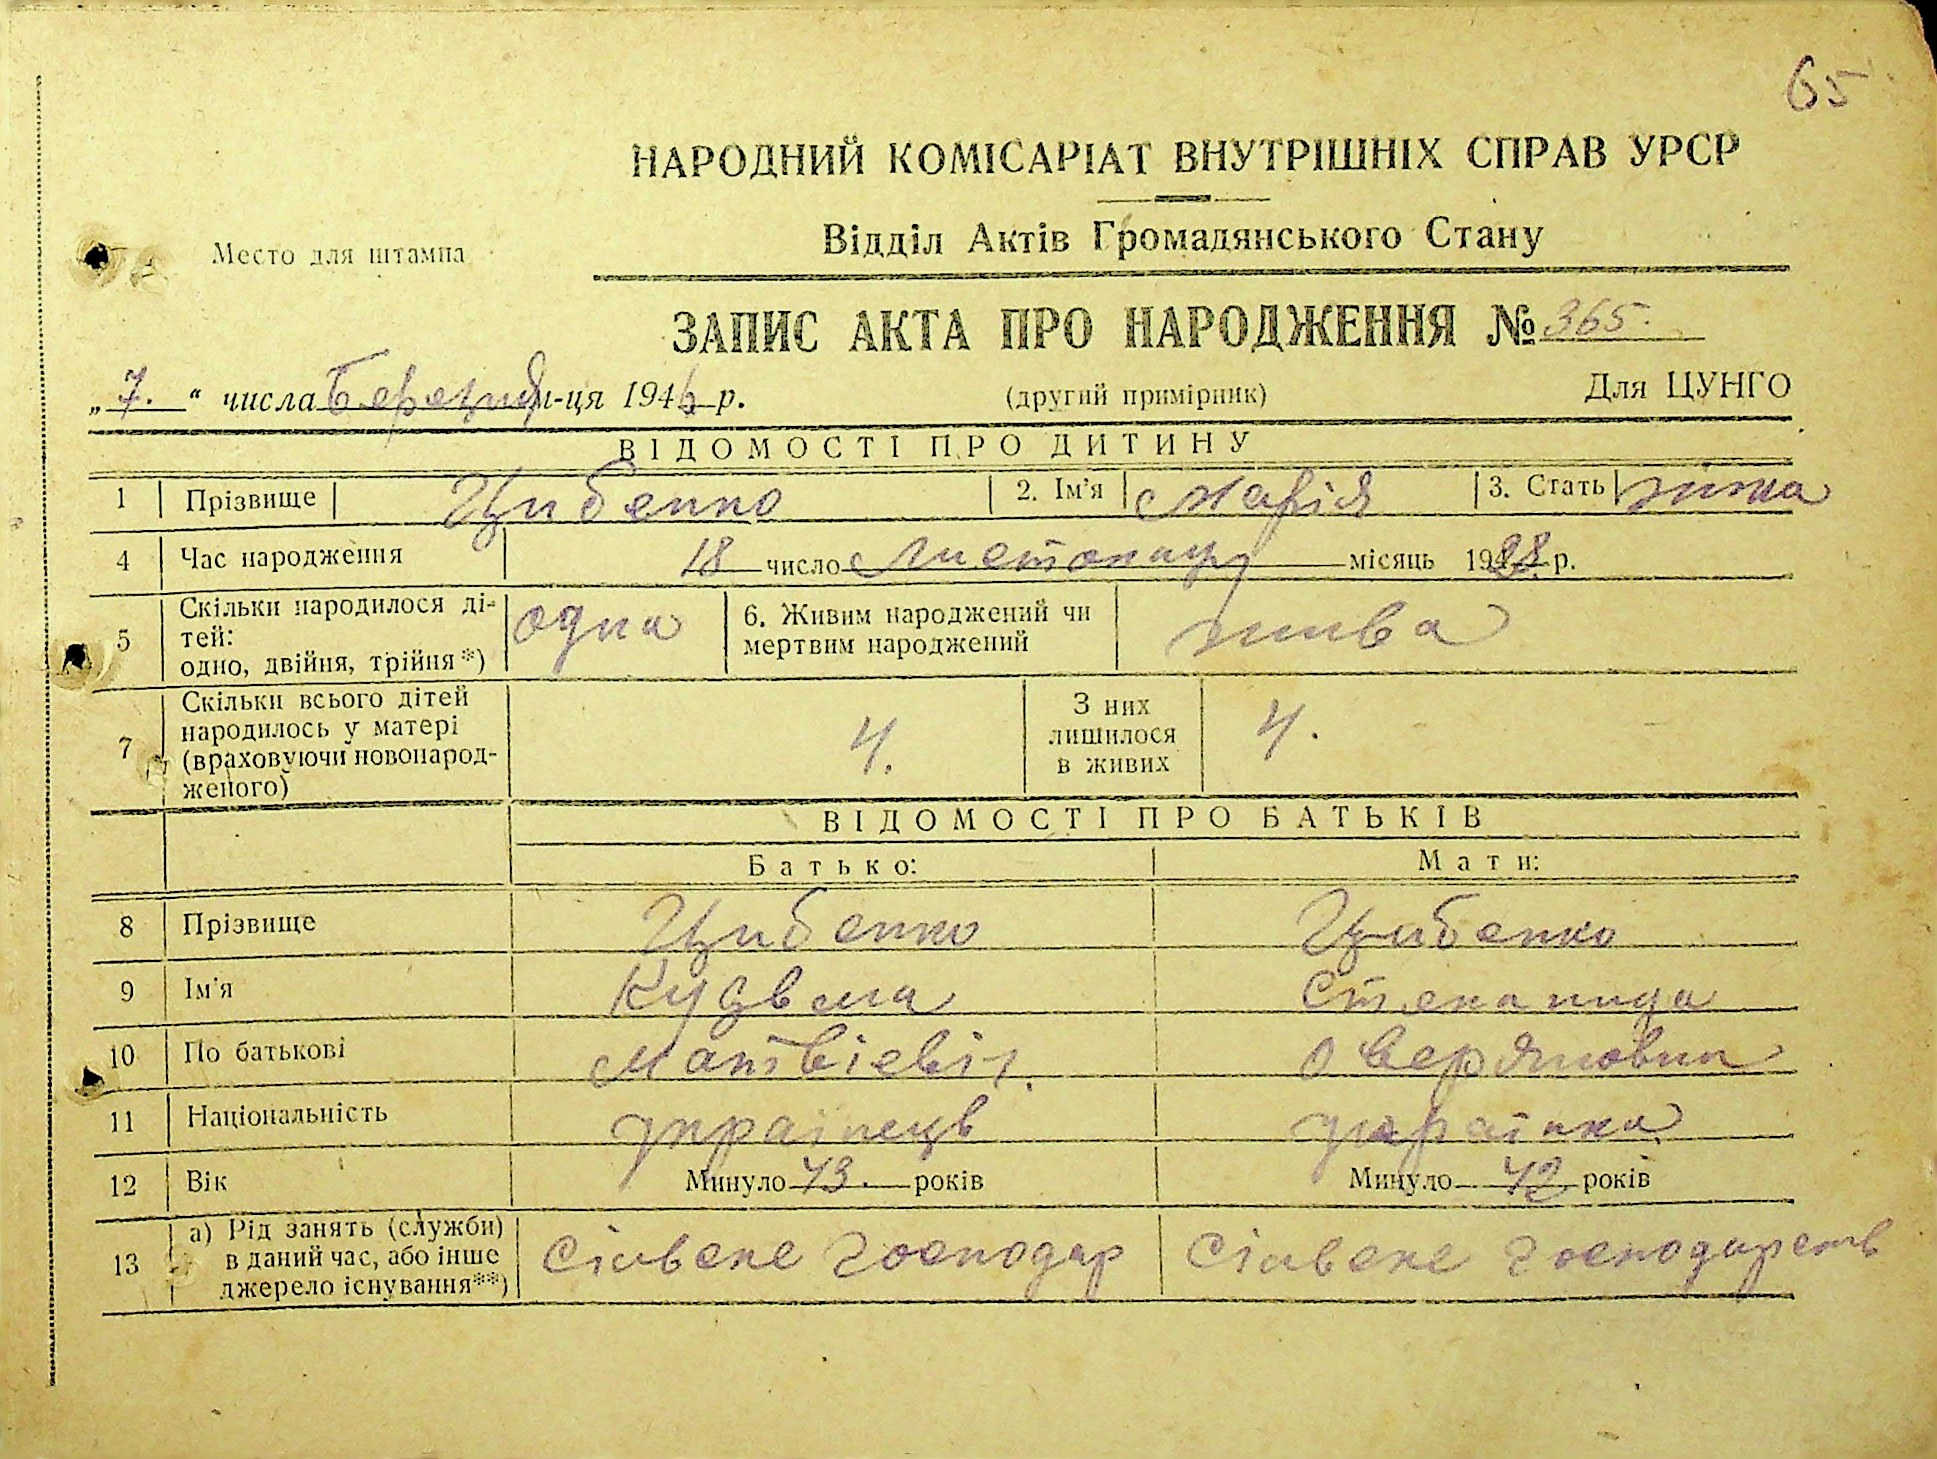 65
НАРОДНИЙ КОМІСАРІАТ ВНУТРІШНІХ СПРАВ УРСР
Место для штампа
Відділ Актів Громадянського Стану
ЗАПИС АКТА ПРО НАРОДЖЕННЯ № 365.
„7.“ числа Березня м-ця 1946 р. (другий примірник) Для ЦУНГО
ВІДОМОСТІ ПРО ДИТИНУ
1 Прізвище Цибенко 2. Ім'я Марія 3. Стать жінка
4 Час народження 18 число Листопад місяць 1928 р.
5 Скільки народилося ді-
тей:
одно, двійня, трійня*) одна 6. Живим народжений чи
мертвим народжений жива
7 Скільки всього дітей
народилось у матері
(враховуючи новонарод-
женого) 4. З них
лишилося
в живих 4.
ВІДОМОСТІ ПРО БАТЬКІВ
Батько: Мати:
8 Прізвище Цибенко Цибенко
9 Ім'я Кузьма Степанида
10 По батькові Матвієвіч Оверяновна
11 Національність українець українка
12 Вік Минуло 43. років Минуло 42 років
13 а) Рід занять (служби)
в даний час, або інше
джерело існування**) Сільске господар Сільске господарств